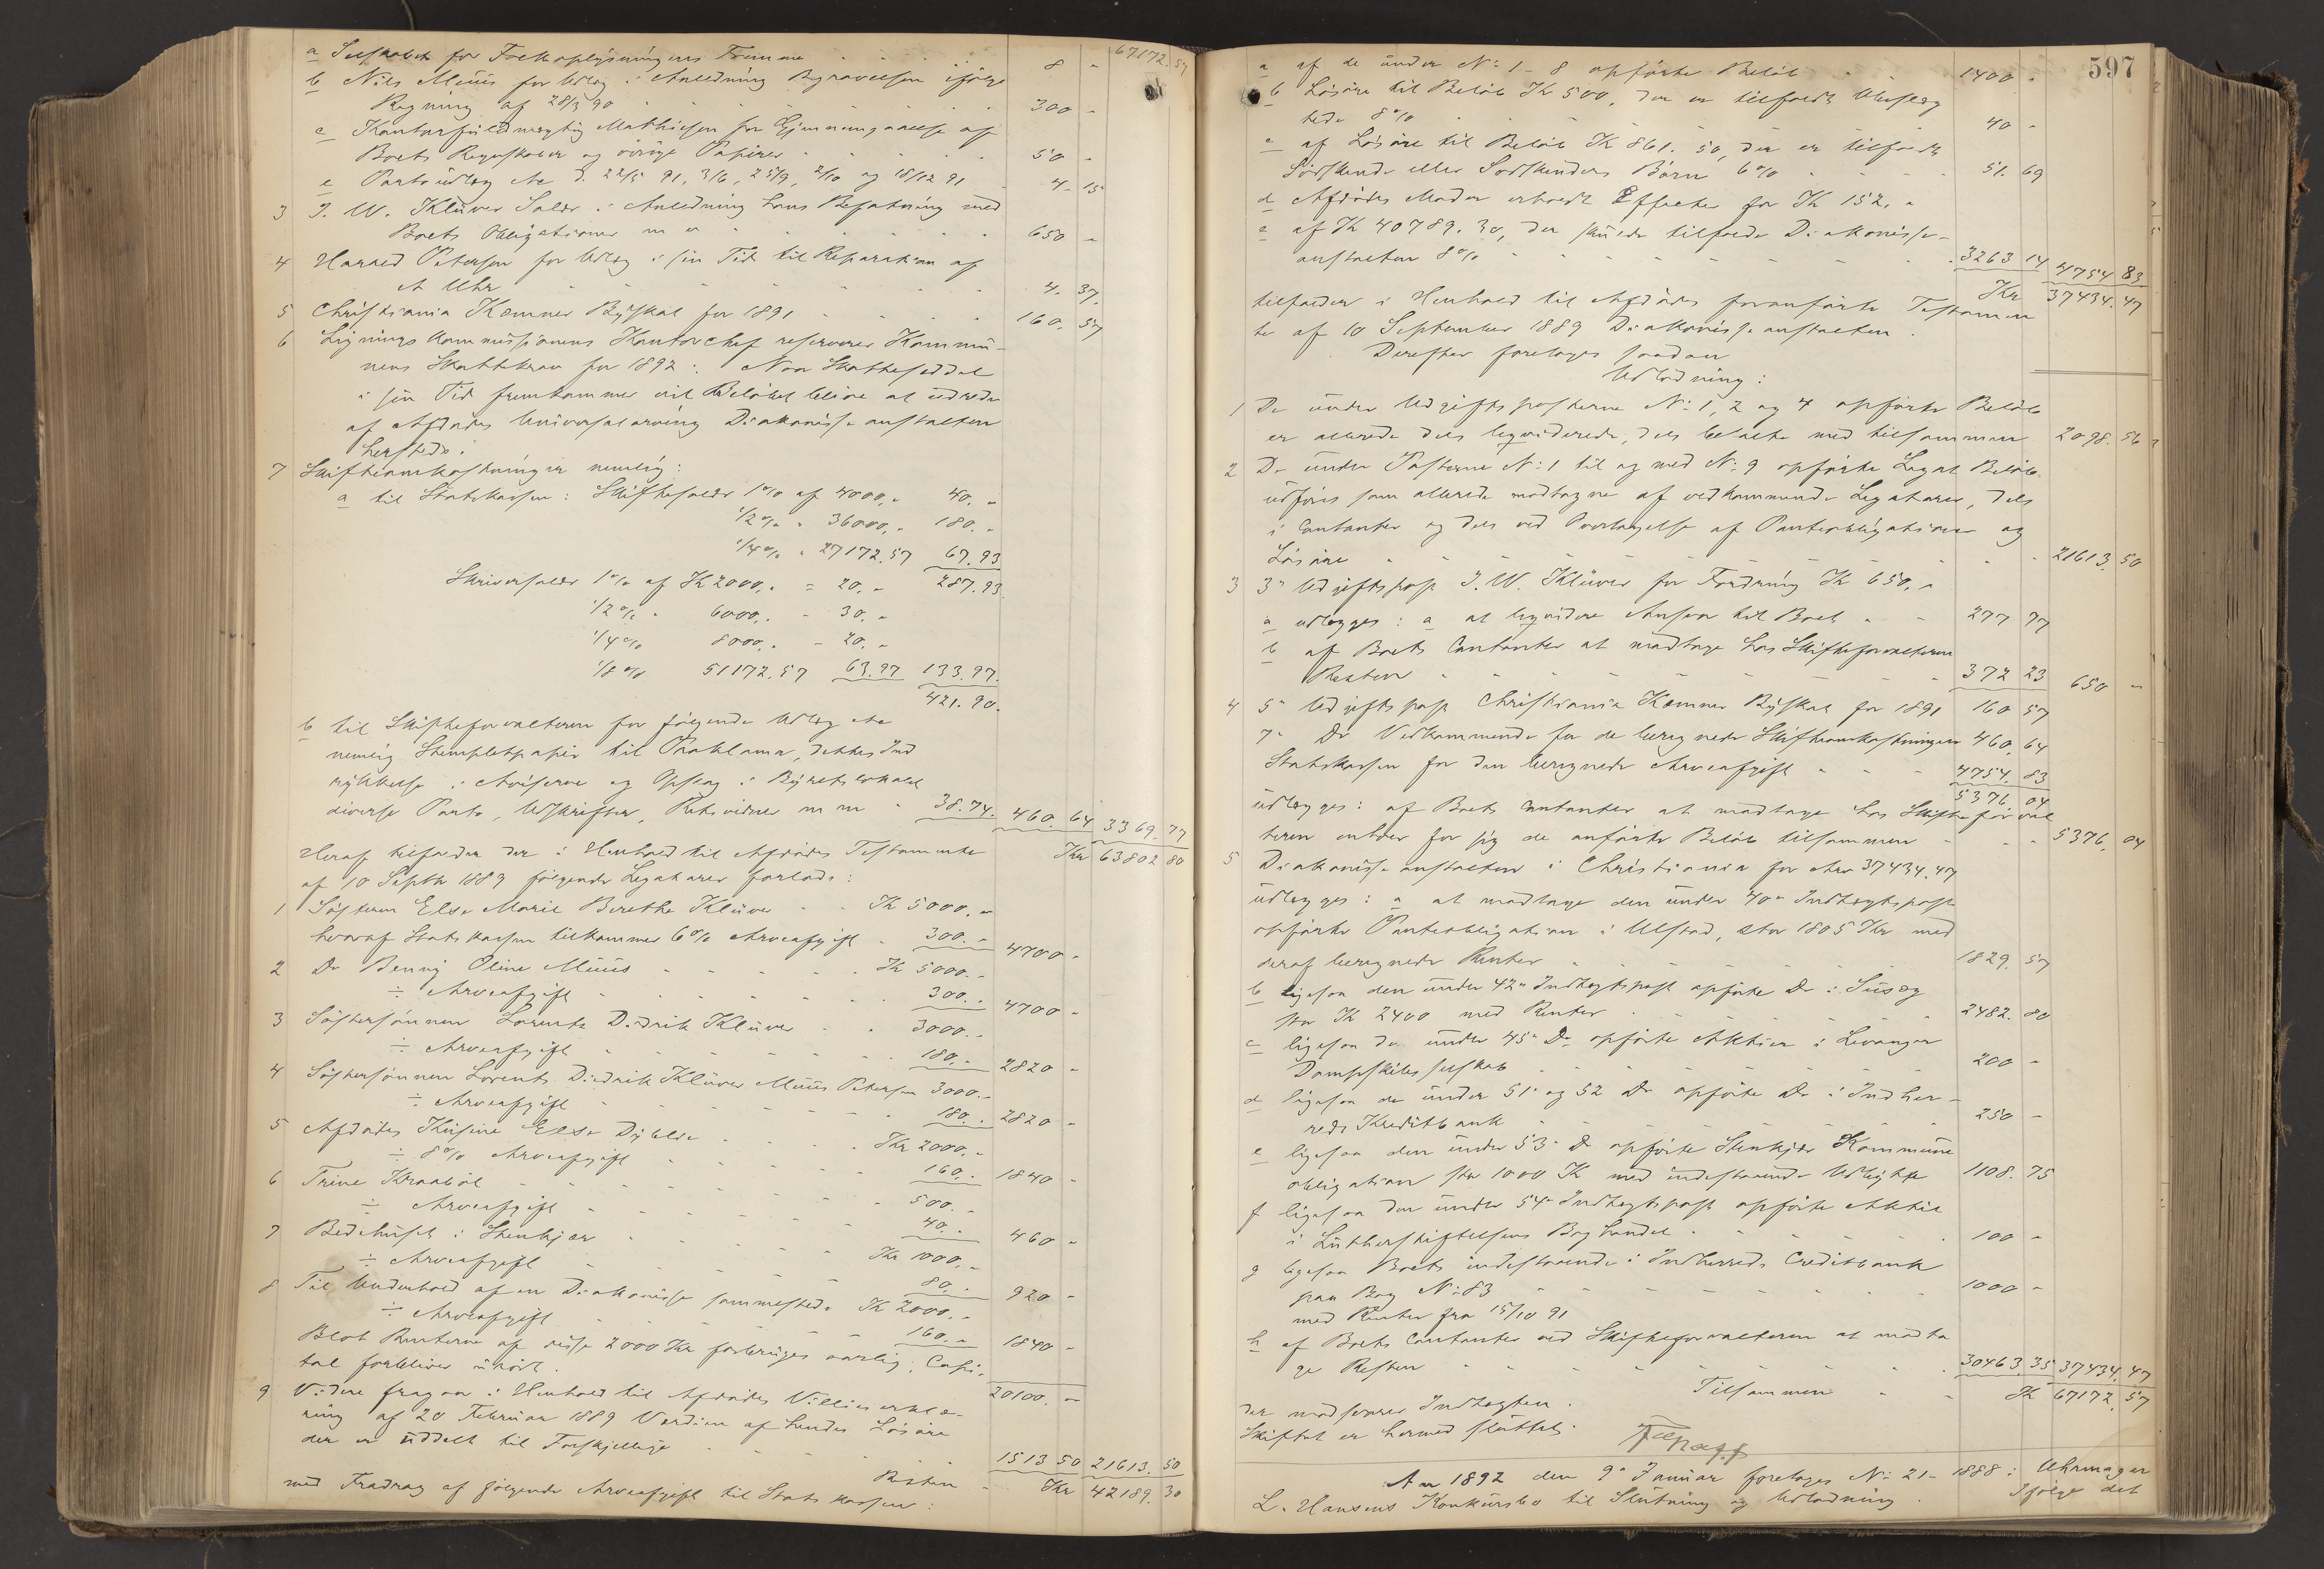 67172.57
a Selskabet for Folkeoplysningens Fremme 8 -
b Nils Müüs for Udlæg i Anledning Begravelsen ifølge
Regning af 28/3 90 300 -
c Kontorfuldmægtig Mathiesen for Gjennemgaaelse af
Boets Regnskaber og øvrige Papirer 50 -
e Portoudlæg etc d. 22/5 91, 3/6, 25/9, 2/10 og 18/12 91 4. 15
3 J. W. Klüver Salær i Anledning hans Befatning med
Boets Obligationer m. v. 650 -
4 Harald Petersen for Udlæg i sin Tid til Reparation af
et Uhr 4. 37.
5 Christiania Kæmner Byskat for 1891 160. 57
6 Ligningskommissionens Kontorchef reserverer Kommu-
nens Skattekrav for 1892: Naar Skatteseddel
i sin Tid fremkommer vil Beløbet blive at udrede
af Afdødes Universalarving Diakonisseanstalten
hersteds.
7 Skifteomkostninger nemlig:
a til Statskassen: Skiftesalær 1% af 4000,- 40. -
1/2% " 36000,- 180. -
1/4% " 27172.57 67.93
287.93
Skriversalær 1% af Kr 2000,- = 20. -
1/2% " 6000,. - 30. -
1/4% 8000,. - 20. -
1/8% 51172.57 63.97 133.97.
421.90.
b til Skifteforvalteren for følgende Udlæg etc
nemlig Stempletpapir til Proklama, dettes Ind
rykkelse i Aviserne og Opslag i Byretslokalet
diverse Porto, Udskrifter, Retsvidner m m 38.74. 460. 64 3369. 77
Kr 63802 80
Heraf tilfalder der i Henhold til Afdødes Testamente
af 10 Septbr 1889 følgende Legatarer forlods:
1 Søsteren Else Marie Birethe Klüver Kr 5000. -
hvoraf Statskassen tilkommer 6% Arveafgift 300. - 4700 -
2 Do Benny Oline Müüs Kr 5000. -
÷ Arveafgift 300. - 4700 -
3 Søstersønnen Lorentz Didrik Klüver 3000. -
÷ Arveafgift 180. - 2820 -
4 Søstersønnen Lorents Diedrik Klüver Müüs Petersen 3000. -
÷ Arveafgift 180. - 2820 -
5 Afdødes Kusine Else Dybler Kr 2000. -
÷ 8% Arveafgift 160. - 1840 -
6 Trine Kraabøl 500. -
÷ Arveafgift 40. - 460 -
7 Bedehuset i Stenkjær Kr 1000. -
÷ Arveafgift 80. - 920 -
8 Til Underhold af en Diakonisse sammesteds Kr 2000. -
÷ Arveafgift 160. - 1840 -
Blot Renterne af disse 2000 Kr forbruges aarlig; Capi-
tal forbliver urørt. 20100. -
9 Videre fragaar i Henhold til Afdødes Villieserklæ-
ring af 20 Februar 1889 Værdien af hendes Løsøre
der er uddelt til Forskjellige 1513 50 21613. 50
Resten Kr 42189. 30
med Fradrag af følgende Arveafgift til Statskassen:
597
a af de under No 1 - 8 opførte Beløb 1400 -
b Løsøre til Beløb Kr 500, der er tilfaldt Ubeslæg
tede 8% 40 -
c af Løsøre til Beløb Kr 861. 50, der er tilfaldt
Sødskende eller Sødskendes Børn 6% 51. 69
d Afdødes Moder erholdt Effecter for Kr 152. -
e af Kr 40789. 30, der skulde tilfalde Diakonisse-
anstalten 8% 3263 14 4754 83
Kr 37434. 47
tilfalder i Henhold til Afdødes foranførte Testamen
te af 10 September 1889 Diakonisseanstalten.
Derefter foretoges saadan
Udlodning:
1 De under Udgiftsposterne No 1, 2 og 4 opførte Beløb
er allerede dels liqviderede, dels betalte med tilsammen 2098. 56
2 De under Posterne No 1 til og med No 9 opførte Legat Beløb
udføres som allerede modtagne af vedkommende Legatarer, dels
i Contanter og dels ved Overtagelse af Panteobligationer og
Løsøre 21613. 50
3 3die Udgiftspost J. W. Klüver for Fordring Kr 650. -
a udlægges: a at liqvidere Ansvar til Boet 277 77
b af Boets Contanter at modtage hos Skifteforvalteren
Resten 372 23 650 -
4 5te Udgiftspost Christiania Kæmner Byskat for 1891 160 57
7de Do Vedkommende for de beregnede Skifteomkostninger 460. 64
Statskassen for den beregnede Arveafgift 4754. 83
5376. 04
udlægges: af Boets Contanter at modtage hos Skifteforval
teren enhver for sig de anførte Beløb tilsammen 5376. 04
5 Diakonisseanstalten i Christiania for Arv 37434.47
udlægges: a at modtage den under 40de Indtægtspost
opførte Panteobligation i Ulstad, stor 1805 Kr med
deraf beregnede Renter 1829. 57
b ligesaa den under 42de Indtægtspost opførte Do i Susæg
stor Kr 2400 med Renter 2482. 80
c ligesaa de under 45de Do opførte Aktier i Levanger
Dampskibsselskab 200 -
d ligesaa de under 51de og 52 Do opførte Do i Indher-
reds Kreditbank 250 -
e ligesaa den under 53de Do opførte Stenkjær Kommune
obligation stor 1000 Kr med indestaaende Udbytte 1108. 75
f ligesaa den under 54de Indtægtspost opførte Aktie
i Lutherstiftelsens Boghandel 100 -
g ligesaa Boets indestaaende i Indherreds Creditbank
paa Bog No 83 1000 -
med Renter fra 15/10 91
h af Boets Contanter ved Skifteforvalteren at modta
ge Resten 30463. 35 37434. 47
Tilsammen Kr 67172. 57
der modsvarer Indtægten.
Skiftet er hermed sluttet.
Ar 1892 den 9de Januar foretoges No 21 - 1888: Uhrmager
L. Hansens Konkursbo til Slutning og Udlodning. Ifølge det